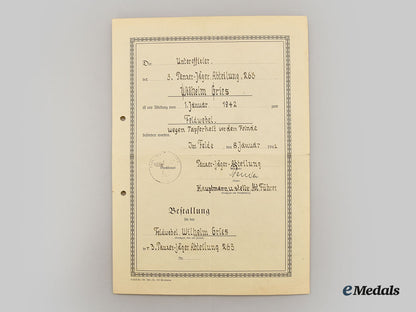 Der Unteroffizier
der 3. Panzer-Jäger Abteilung 263
Wilhelm Gries
ist mit Wirkung vom 1. Januar 1942 zum
Feldwebel
wegen Tapferkeit vor dem Feinde
befördert worden.
Im Felde, den 8. Januar 1942
Panzer-Jäger-Abteilung
Hauptmann u. stellv. Abt. Führer
Bestallung
für den
Feldwebel Wilhelm Gries
der 3. Panzer-Jäger Abteilung 263
eMedals